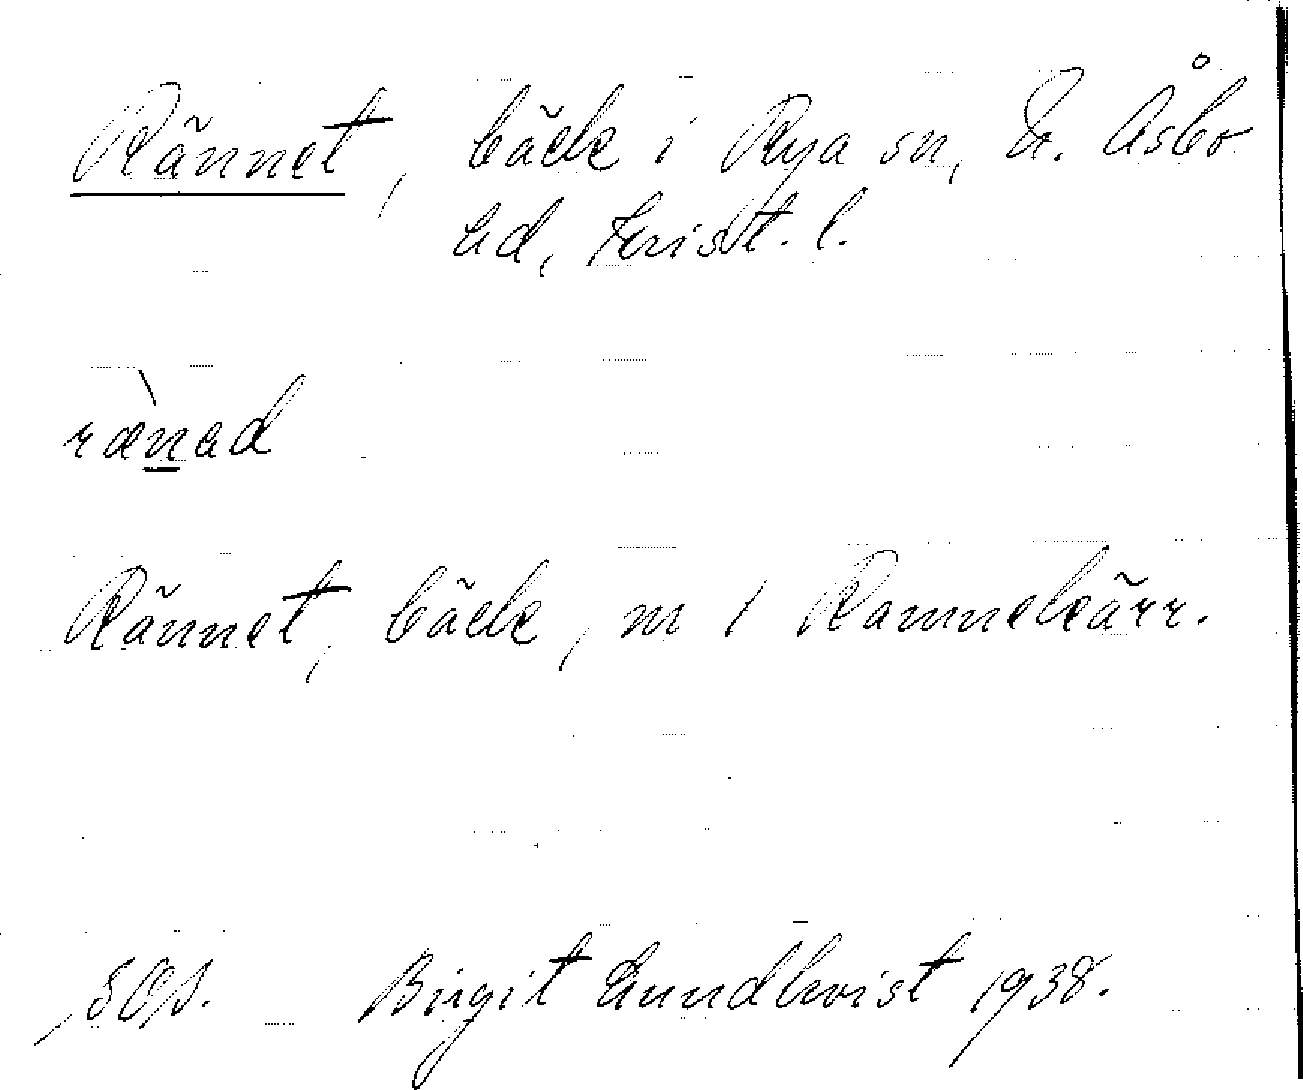 Rännet, bäck i Rya sn, N. Åsbo
hd, Krist. l.
rænad
Rännet, bäck, m 1 Ramnekärr.
Birgit Lundkvist 1938.